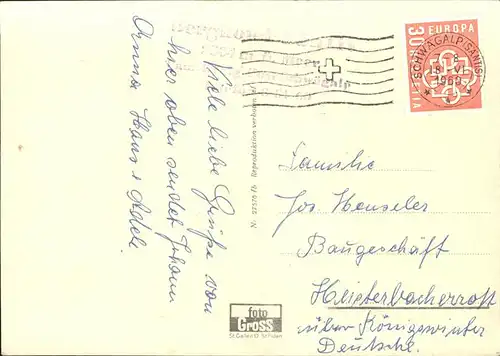 Viele liebe Grüße von
hier oben sendet Johann
Hans + Adele.
foto
Gross
St. Gallen
N. 22576 Fb Reproduktion verboten
EUROPA
30
HELVETIA
SCHWÄGALP (SÄNTIS)
18. VI.
1960
Familie
Jos Henseler
Baugeschäft
Heisterbacherrott
über Königswinter
Deutschl.